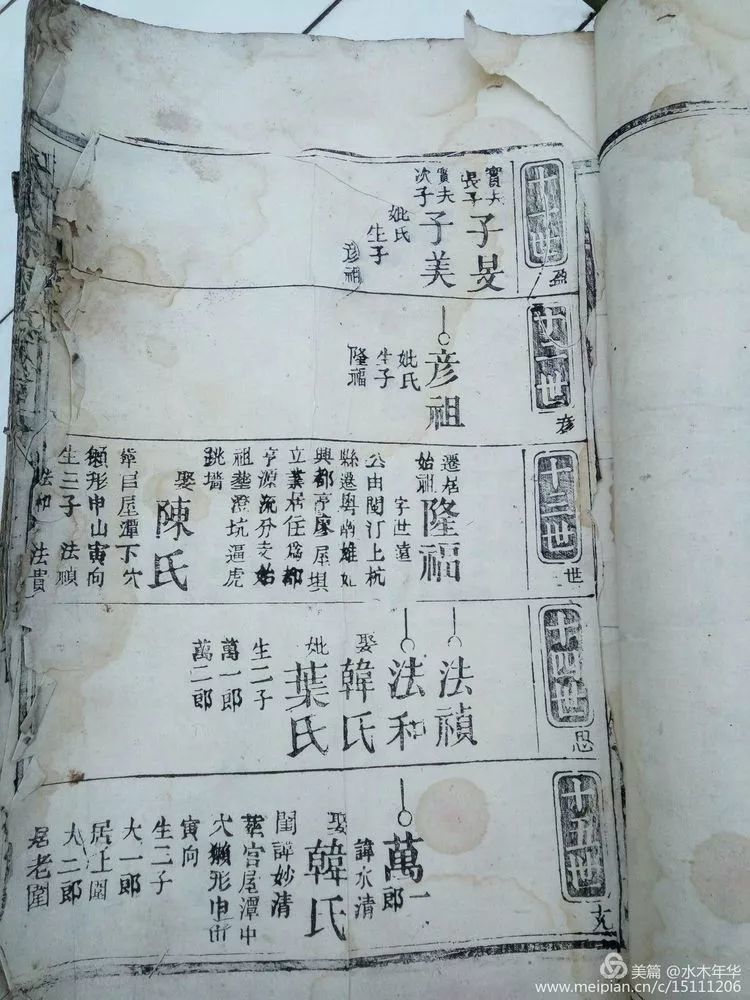 十一世
盈
實夫
長子
子旻
實夫
次子
子美
妣氏
生子
彦祖
十二世
彦
彦祖
妣氏
生子
隆福
十三世
世
遷居
始祖
隆福
字世遠
公由閩汀上杭
縣遷粵南雄始
興都亭廖犀堪
立業居住爲都
亨源流分支始
祖塟澄坑逼虎
跳墻
娶陳氏
塟官屋潭下穴
獺形申山寅向
生三子 法禎
法和 法貴
十四世
思
法禎
法和
娶韓氏
妣葉氏
生二子
萬一郎
萬二郎
十五世
萬一郎
諱水清
娶韓氏
閨諱妙清
塟官屋潭中
穴獺形申山
寅向
生二子
大一郎
居上圍
大二郎
居老圍
美篇 @水木年华
www.meipian.cn/c/15111206